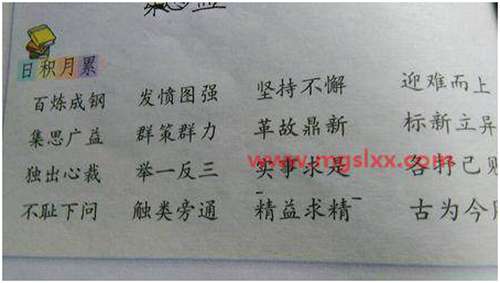 日积月累
百炼成钢 发愤图强 坚持不懈 迎难而上
集思广益 群策群力 革故鼎新 标新立异
www.mgslxx.com
独出心裁 举一反三 实事求是 各抒己
不耻下问 触类旁通 精益求精 古为今